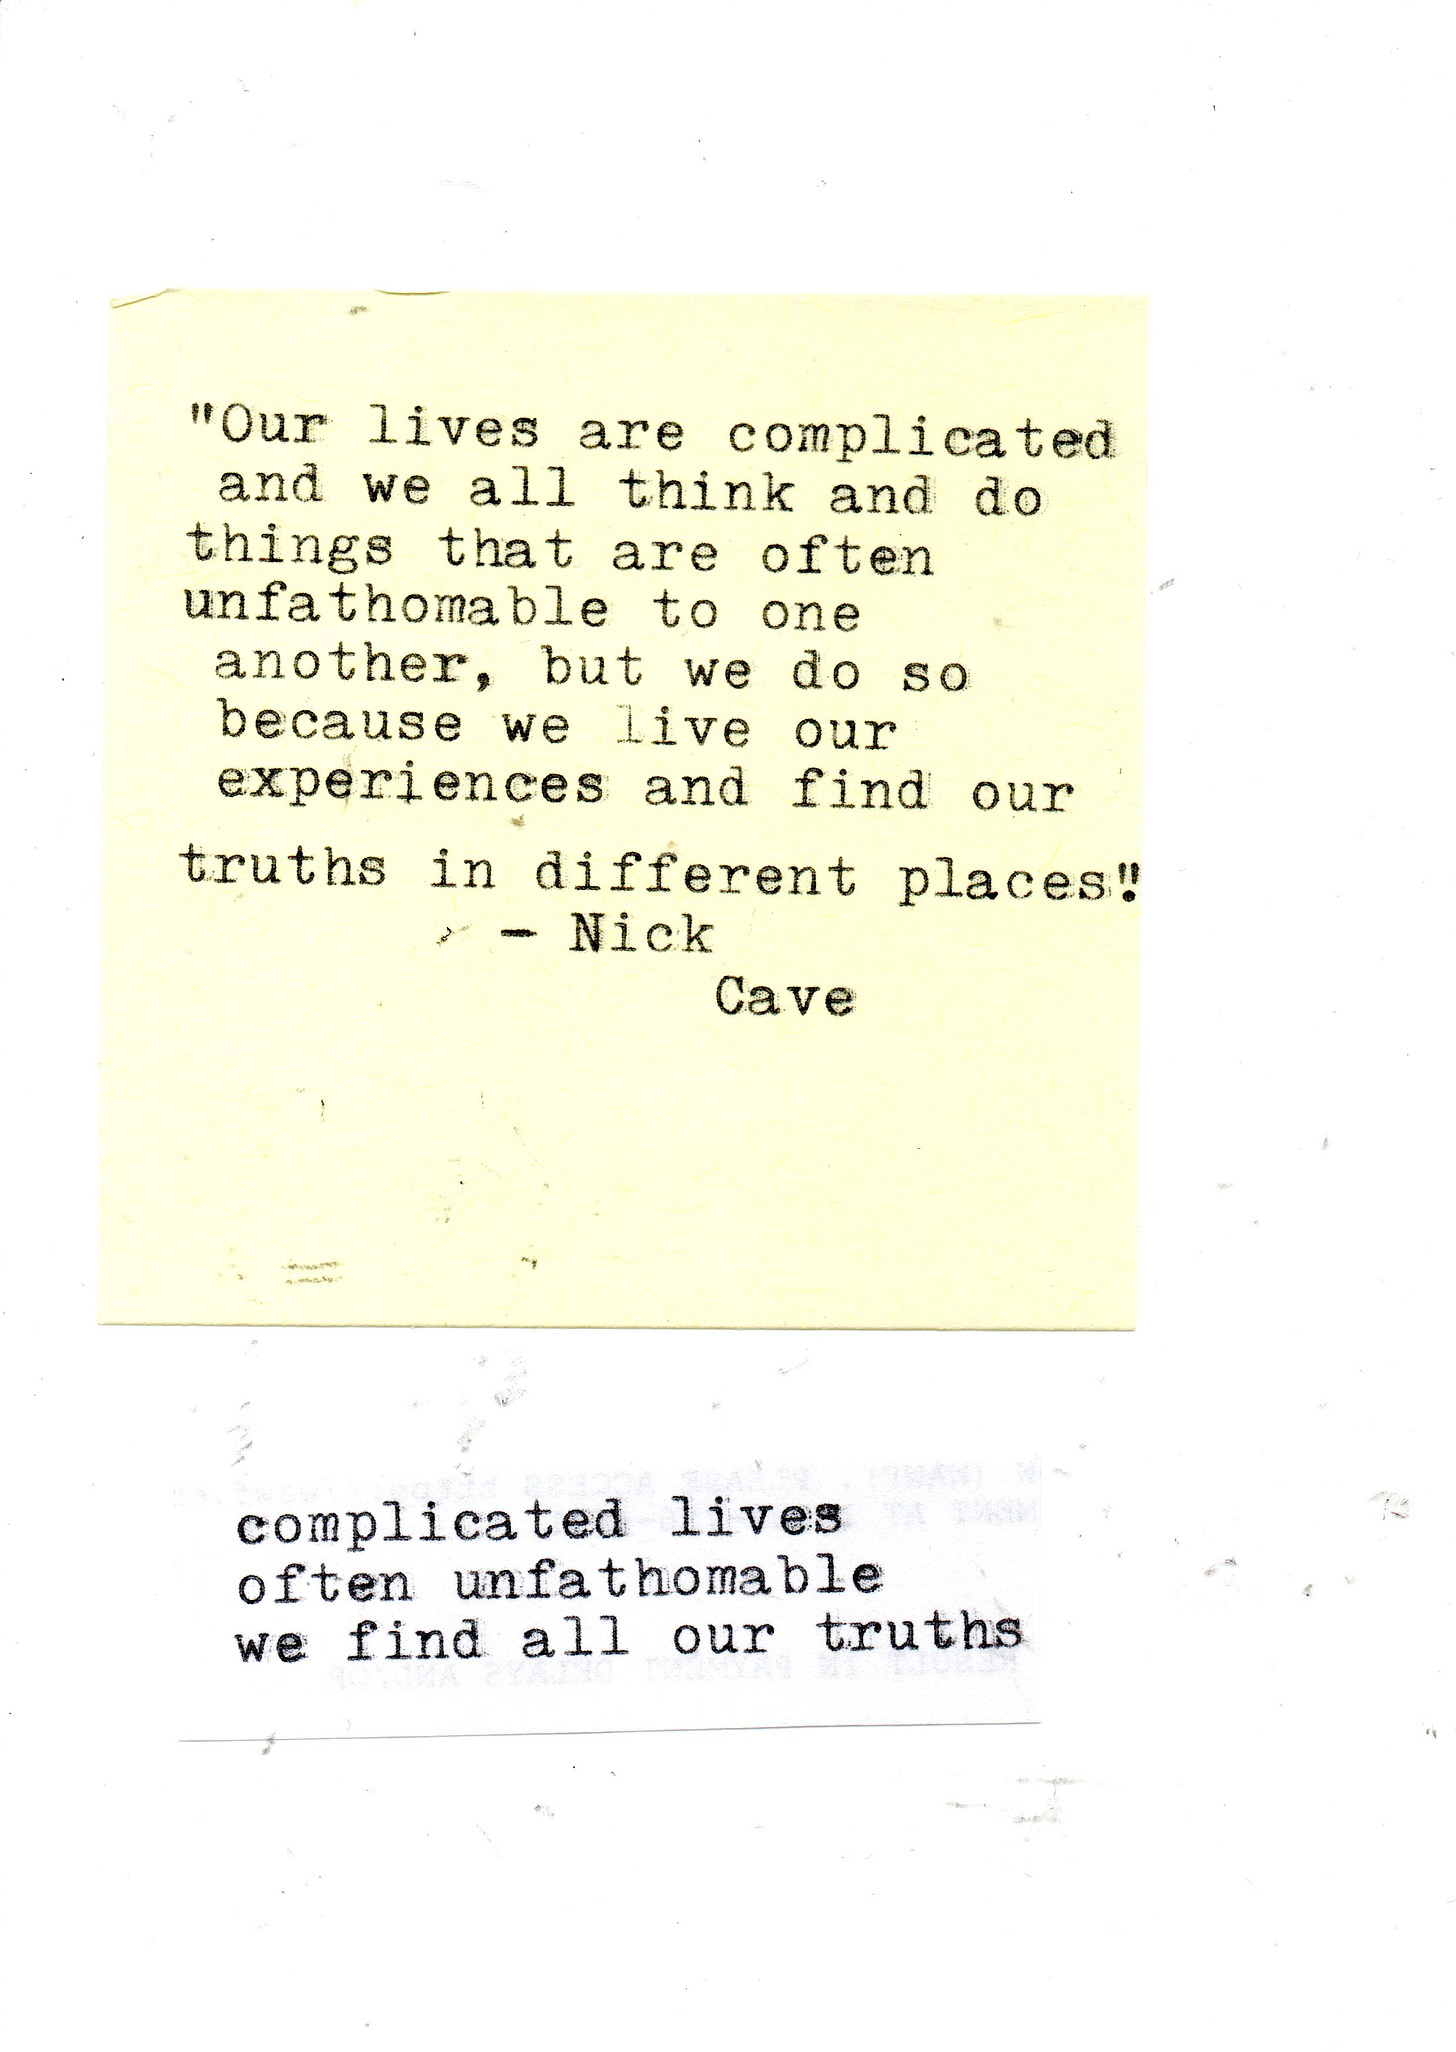 "Our lives are complicated
and we all think and do
things that are often
unfathomable to one
another, but we do so
because we live our
experiences and find our
truths in different places."
- Nick
Cave
complicated lives
often unfathomable
we find all our truths